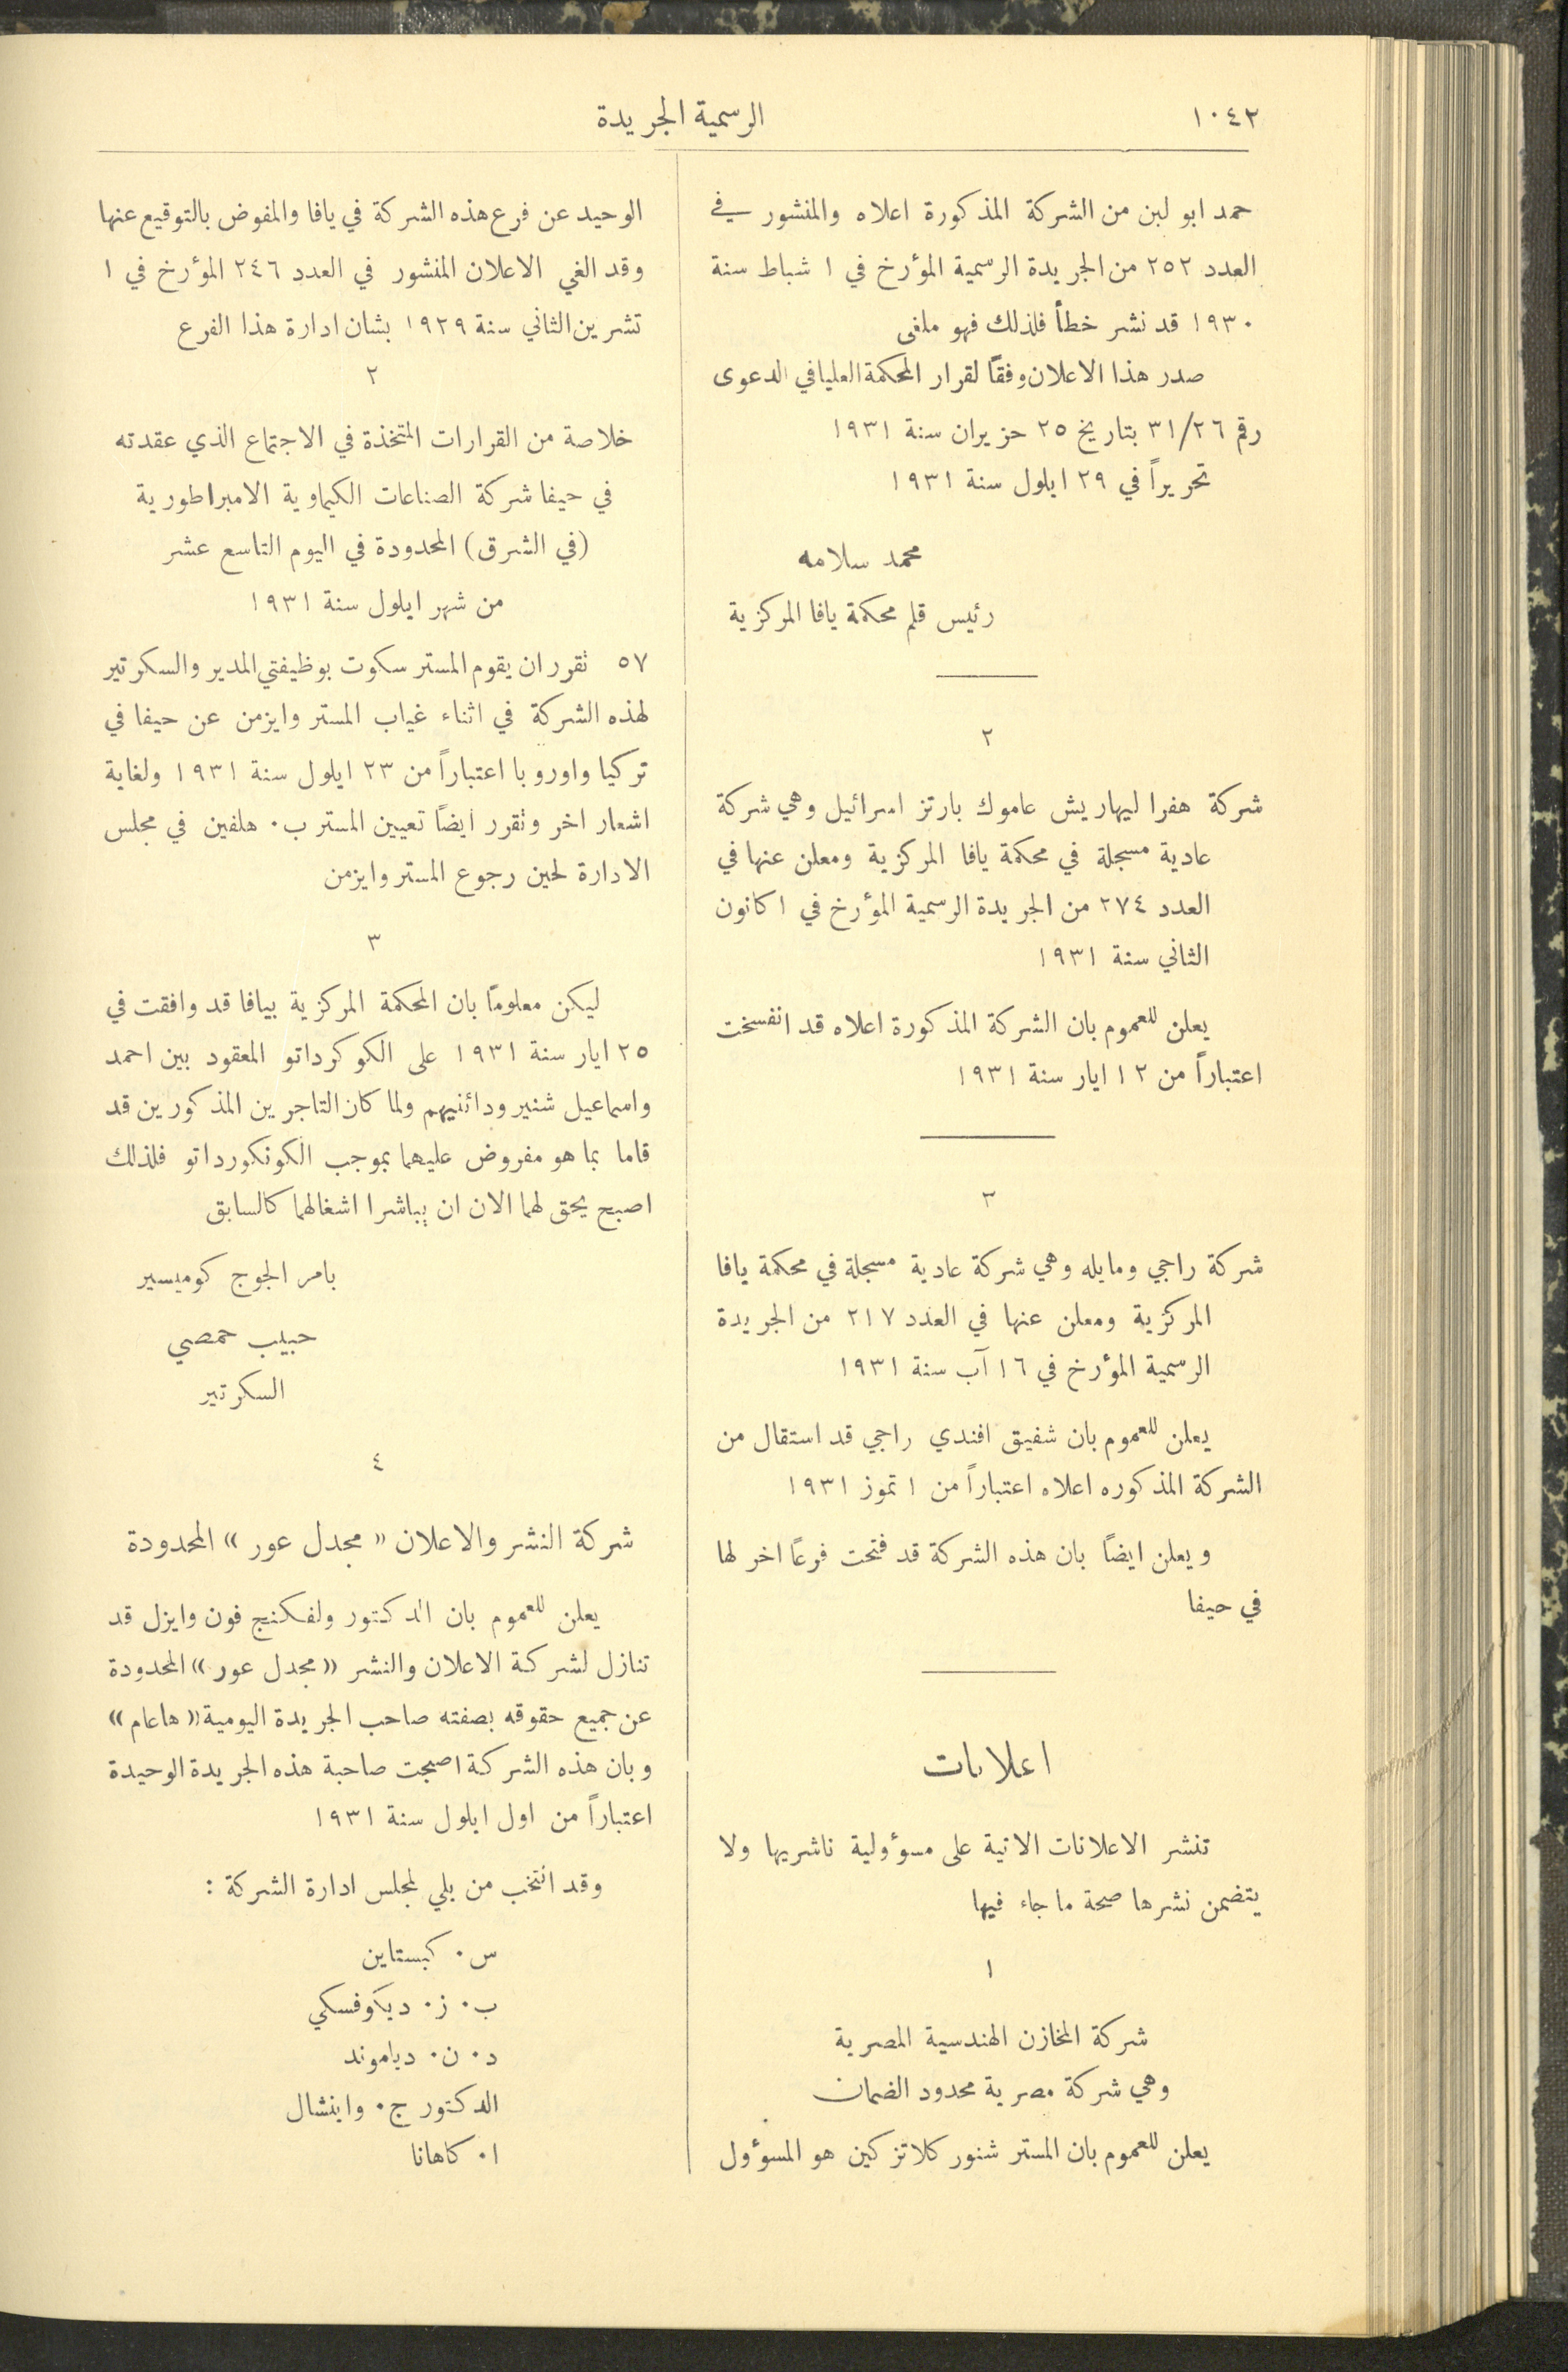 ١٠٤٢
الرسمية الجريدة
حمد ابو لبن من الشركة المذكورة اعلاه والمنشور في
العدد ٢٥٢ من الجريدة الرسمية المؤرخ في ١ شباط سنة
١٩٣٠ قد نشر خطأ فلذلك فهو ملغى
صدر هذا الاعلان وفقاً لقرار المحكمة العليا في الدعوى
رقم ٣١/٢٦ بتاريخ ٢٥ حزيران سنة ١٩٣١
تحريراً في ٢٩ ايلول سنة ١٩٣١
محمد سلامه
رئيس قلم محكمة يافا المركزية
٢
شركة هفرا ليهاريش عاموك بارتز اسرائيل وهي شركة
عادية مسجلة في محكمة يافا المركزية ومعلن عنها في
العدد ٢٧٤ من الجريدة الرسمية المؤرخ في ١ كانون
الثاني سنة ١٩٣١
يعلن للعموم بان الشركة المذكورة اعلاه قد انفسخت
اعتباراً من ١٢ ايار سنة ١٩٣١
٣
شركة راجي ومايله وهي شركة عادية مسجلة في محكمة يافا
المركزية ومعلن عنها في العدد ٢١٧ من الجريدة
الرسمية المؤرخ في ١٦ آب سنة ١٩٣١
يعلن للعموم بان شفيق افندي راجي قد استقال من
الشركة المذكوره اعلاه اعتباراً من ١ تموز ١٩٣١
ويعلن ايضاً بان هذه الشركة قد فتحت فرعاً اخر لها
في حيفا
اعلانات
تنشر الاعلانات الاتية على مسؤولية ناشريها ولا
يتضمن نشرها صحة ما جاء فيها
١
شركة المخازن الهندسية المصرية
وهي شركة مصرية محدود الضمان
يعلن للعموم بان المستر شنور كلاتزكين هو المسؤول
الوحيد عن فرع هذه الشركة في يافا والمفوض بالتوقيع عنها
وقد الغي الاعلان المنشور في العدد ٢٤٦ المؤرخ في ١
تشرين الثاني سنة ١٩٢٩ بشان ادارة هذا الفرع
٢
خلاصة من القرارات المتخذة في الاجتماع الذي عقدته
في حيفا شركة الصناعات الكيماوية الامبراطورية
(في الشرق) المحدودة في اليوم التاسع عشر
من شهر ايلول سنة ١٩٣١
٥٧ تقرر ان يقوم المستر سكوت بوظيفتي المدير والسكرتير
لهذه الشركة في اثناء غياب المستر وايزمن عن حيفا في
تركيا واوروبا اعتباراً من ٢٣ ايلول سنة ١٩٣١ ولغاية
اشعار اخر وتقرر ايضاً تعيين المستر ب٠ هلفين في مجلس
الادارة لحين رجوع المستر وايزمن
٣
ليكن معلوماً بان المحكمة المركزية بيافا قد وافقت في
٢٥ ايار سنة ١٩٣١ على الكوكرداتو المعقود بين احمد
واسماعيل شنير ودائنيهم ولما كان التاجرين المذكورين قد
قاما بما هو مفروض عليهما بموجب الكونكورداتو فلذلك
اصبح يحق لهما الان ان يباشرا اشغالهما كالسابق
بامر الجوج كوميسير
حبيب حمصي
السكرتير
٤
شركة النشر والاعلان «مجدل عور» المحدودة
يعلن للعموم بان الدكتور ولفكنج فون وايزل قد
تنازل لشركة الاعلان والنشر «مجدل عور» المحدودة
عن جميع حقوقه بصفته صاحب الجريدة اليومية «هاعام»
وبان هذه الشركة اصبحت صاحبة هذه الجريدة الوحيدة
اعتباراً من اول ايلول سنة ١٩٣١
وقد انتخب من يلي لمجلس ادارة الشركة :
س٠ كبستاين
ب٠ ز٠ ديكوفسكي
د٠ ن٠ دياموند
الدكتور ج٠ واينشال
ا٠ كاهانا